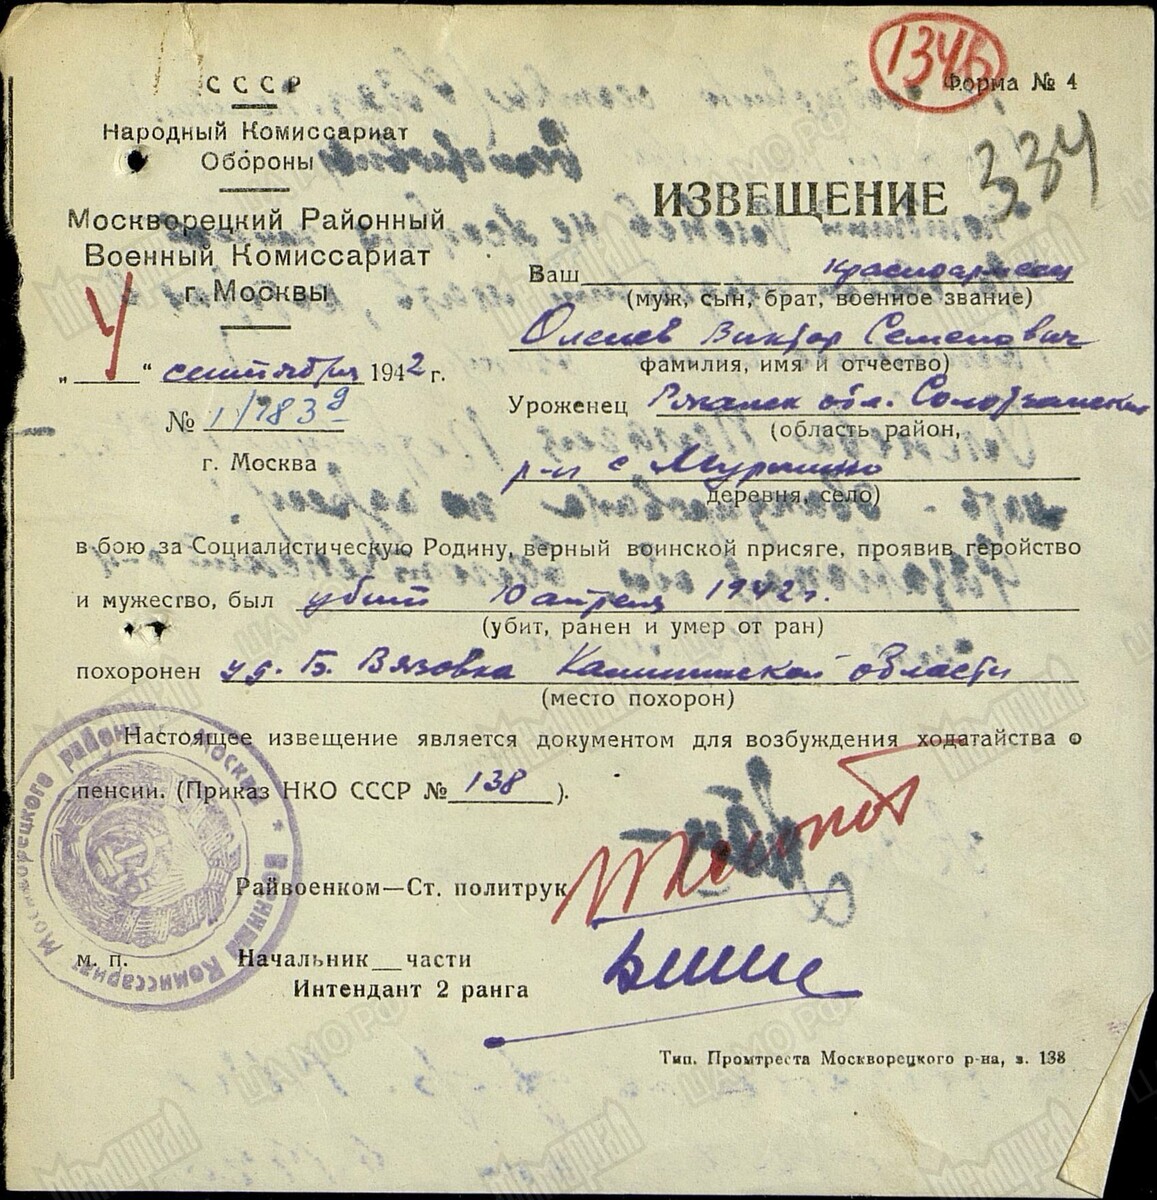 1345
СССР
Форма № 4
Народный Комиссариат
Обороны
334
ИЗВЕЩЕНИЕ
Москворецкий Районный
Военный Комиссариат
г. Москвы
Ваш красноармеец
(муж, сын, брат, военное звание)
Оленев Виктор Семенович
фамилия, имя и отчество)
„ 4 “ сентября 1942 г.
№ 1/783 д
Уроженец Рязанск обл. Солотчинский
(область район,
г. Москва
р-н с Мурмино
деревня, село)
в бою за Социалистическую Родину, верный воинской присяге, проявив геройство
и мужество, был убит 10 апреля 1942 г.
(убит, ранен и умер от ран)
похоронен у д. Б. Вязовка Калининской области
(место похорон)
Настоящее извещение является документом для возбуждения ходатайства о
пенсии. (Приказ НКО СССР № 138 ).
Райвоенком—Ст. политрук
м. п.
Начальник__части
Интендант 2 ранга
Москворецкого района г. Москвы * Военный Комиссариат
Тип. Промтреста Москворецкого р-на, з. 138
Мемориал
ЦАМО РФ